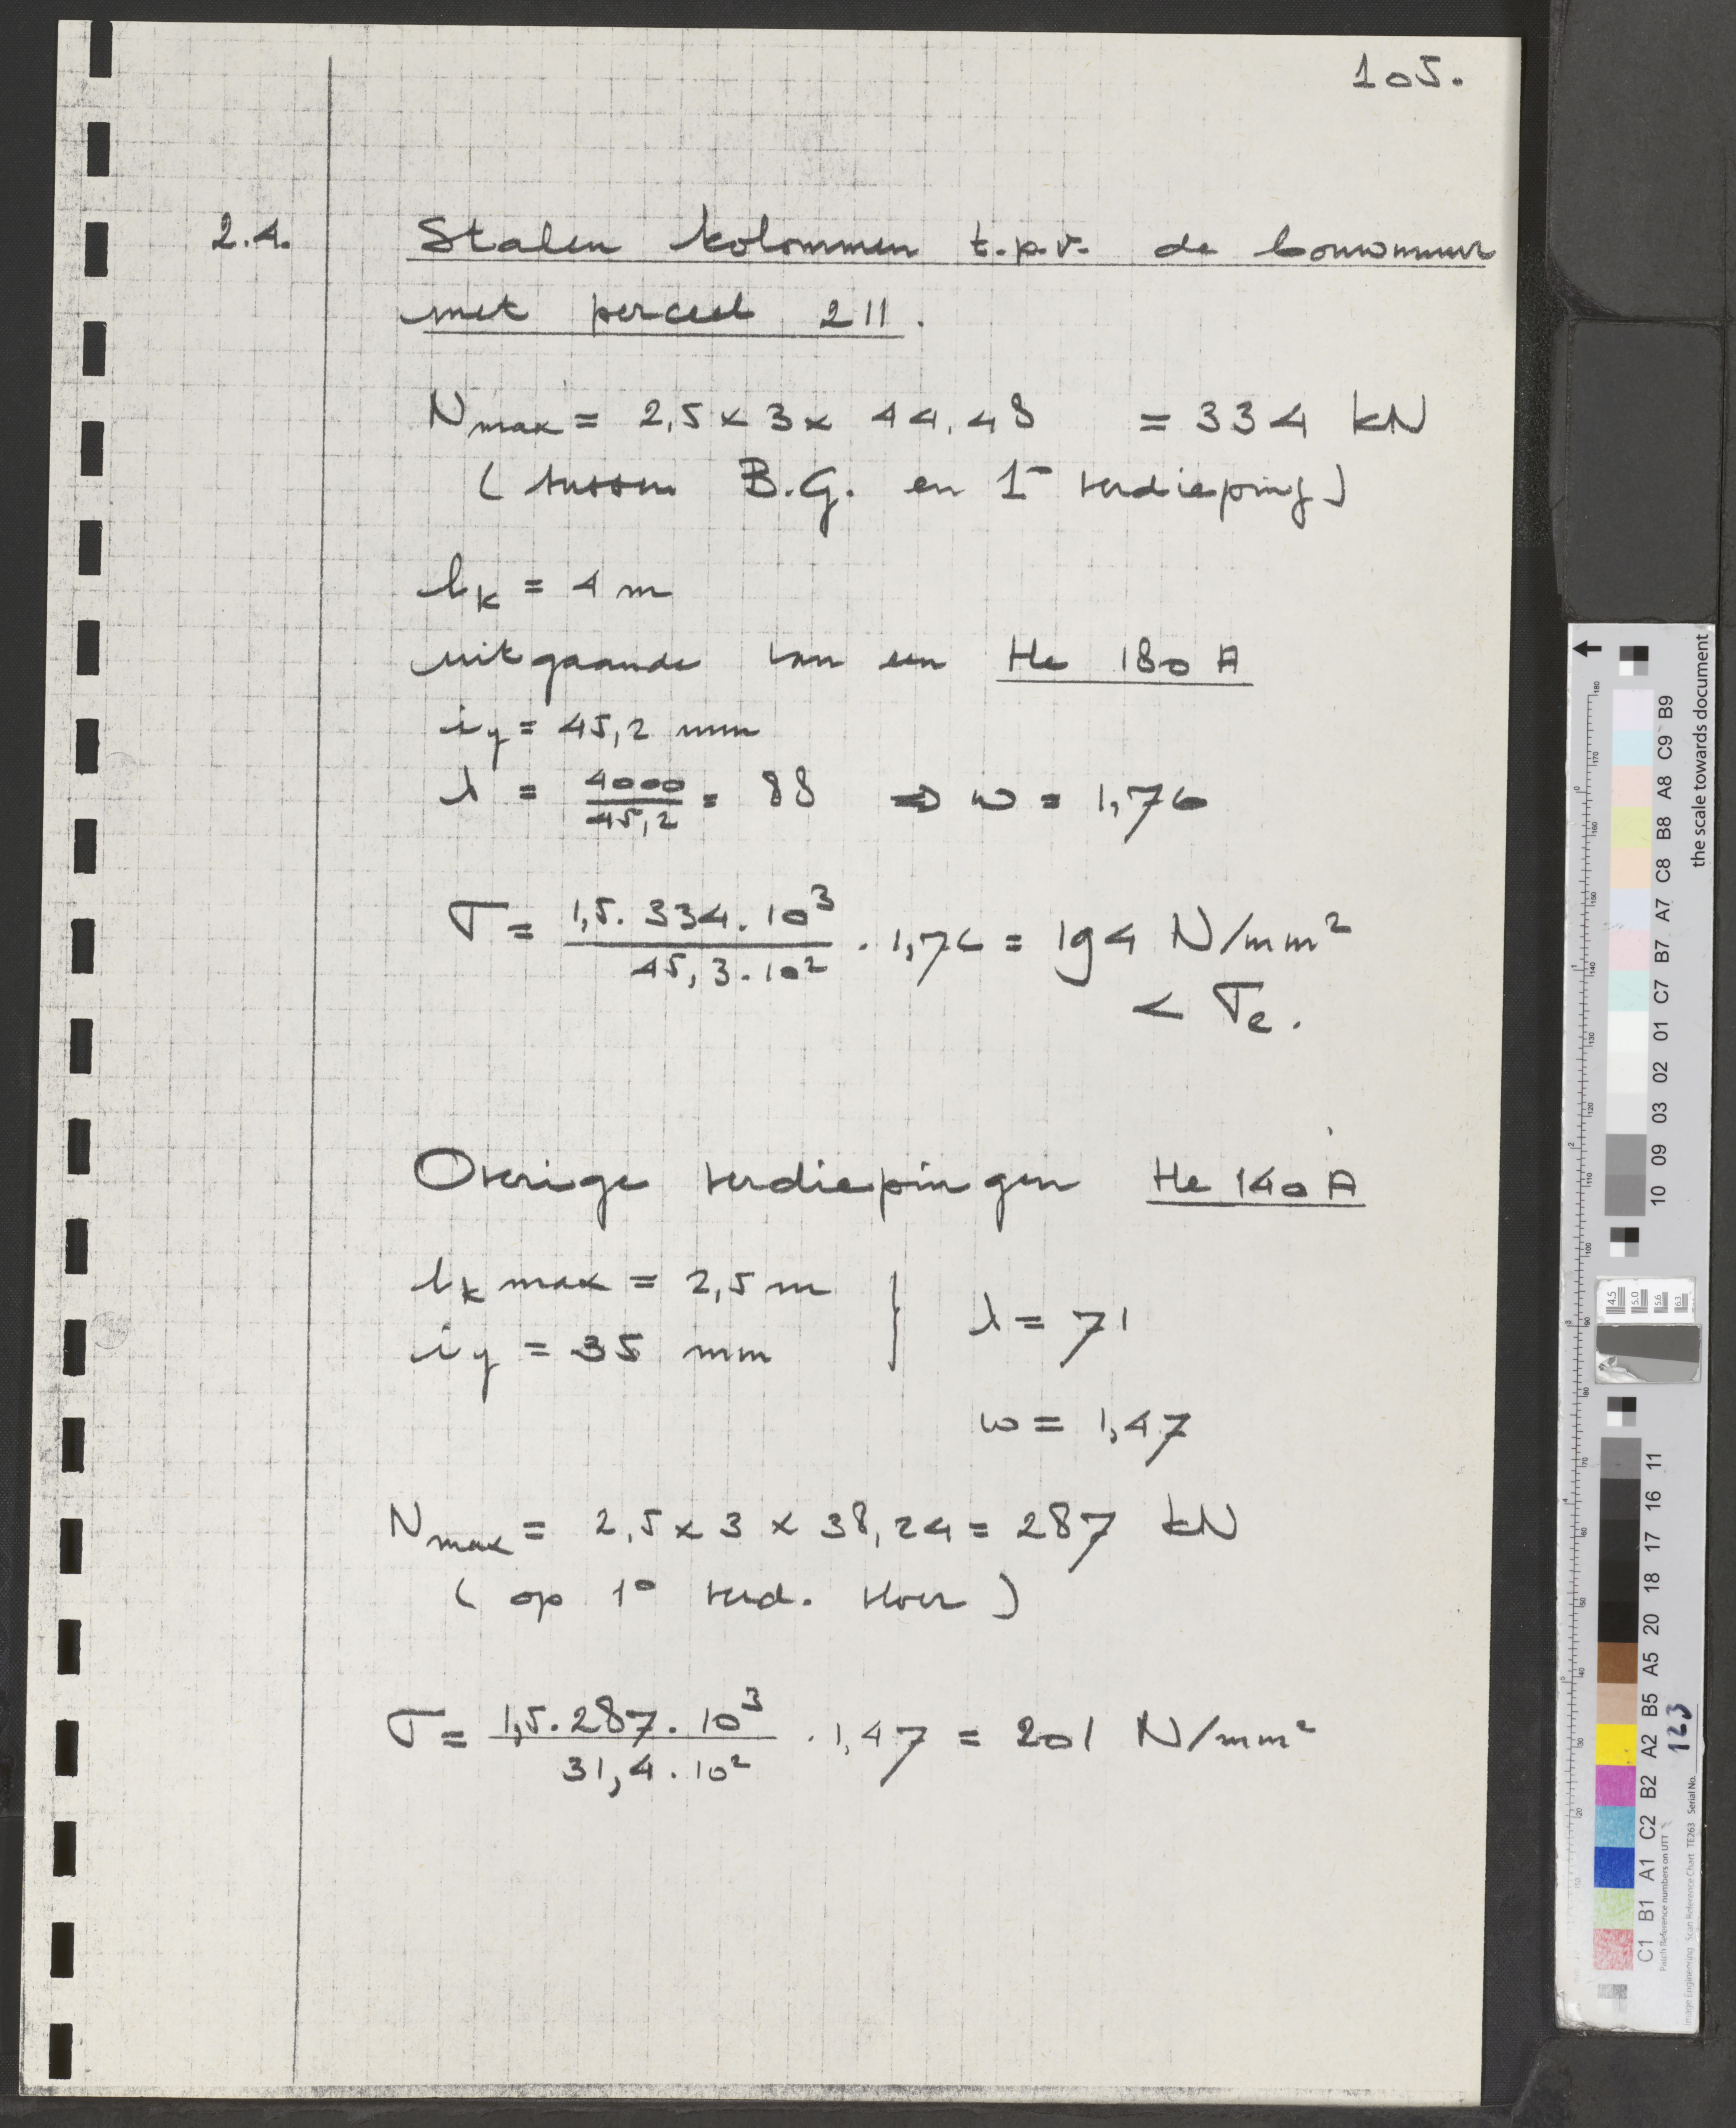 105.
2.4. Stalen kolommen t.p.v. de bouwmuur
met perceel 211.
Nmax = 2,5 x 3 x 44,48 = 334 kN
(tussen B.G. en 1e verdieping)
lk = 4 m
uitgaande van een He 180 A
iy = 45,2 mm
λ = 4000/45,2 = 88 ⇒ ω = 1,76
σ = 1,5 · 334 · 10³ / 45,3 · 10² · 1,76 = 194 N/mm²
< σe.
Overige verdiepingen He 140 A
lk max = 2,5 m } λ = 71
iy = 35 mm
ω = 1,47
Nmax = 2,5 x 3 x 38,24 = 287 kN
(op 1e verd. vloer)
σ = 1,5 · 287 · 10³ / 31,4 · 10² · 1,47 = 201 N/mm²
the scale towards document
C1 B1 A1 C2 B2 A2 B5 A5 20 18 17 16 11
10 09 03 02 01 C7 B7 A7 C8 B8 A8 C9 B9
Patch Reference numbers on UTT
Image Engineering Scan Reference Chart TE263 Serial No. 123